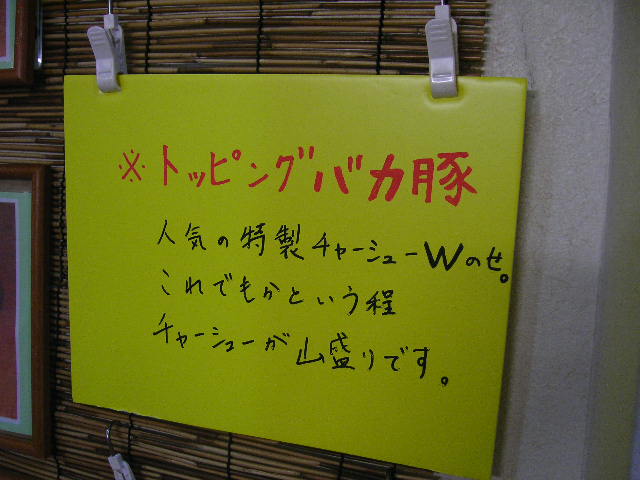 ※トッピングバカ豚
人気の特製チャーシューWのせ。
これでもかという程
チャーシューが山盛りです。